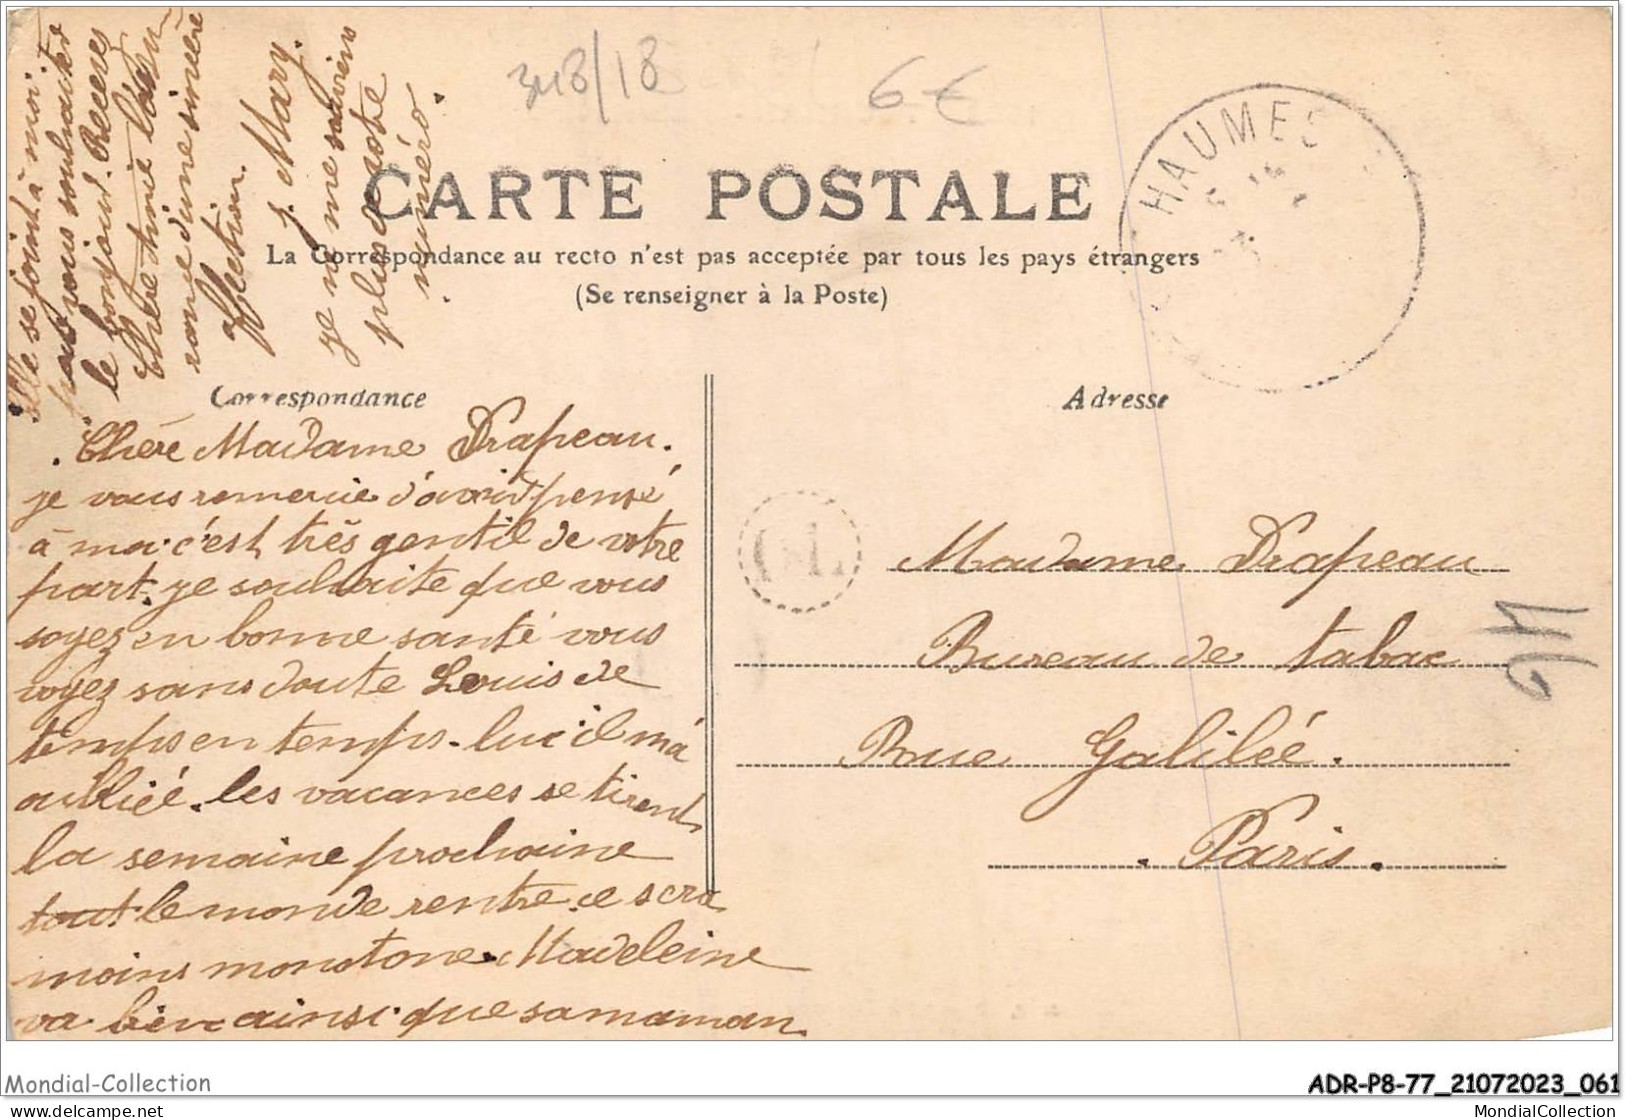 348/18
6€
HAUMES
CARTE POSTALE
La Correspondance au recto n'est pas acceptée par tous les pays étrangers
(Se renseigner à la Poste)
Correspondance
Adresse
Chère Madame Drapeau.
je vous remercie d'avoir pensé
à moi c'est très gentil de votre
part. je souhaite que vous
soyez en bonne santé vous
voyez sans doute Louis de
temps en temps. lui il m'a
oublié. les vacances se tirent
la semaine prochaine
tout le monde rentre. ce sera
moins monotone. Madeleine
va bien ainsi que sa maman
Elle se joint à moi
pour vous souhaiter
le bonjour. Recevez
Chère Amie l'assu
rance d'une sincère
affection.
J. Mary.
je ne me souviens
plus de votre
numéro.
Madame Drapeau
Bureau de tabac
Rue Galilée.
Paris.
Mondial-Collection
https://www.mondialcollection.com
ADR-P8-77_21072023_061
MondialCollection